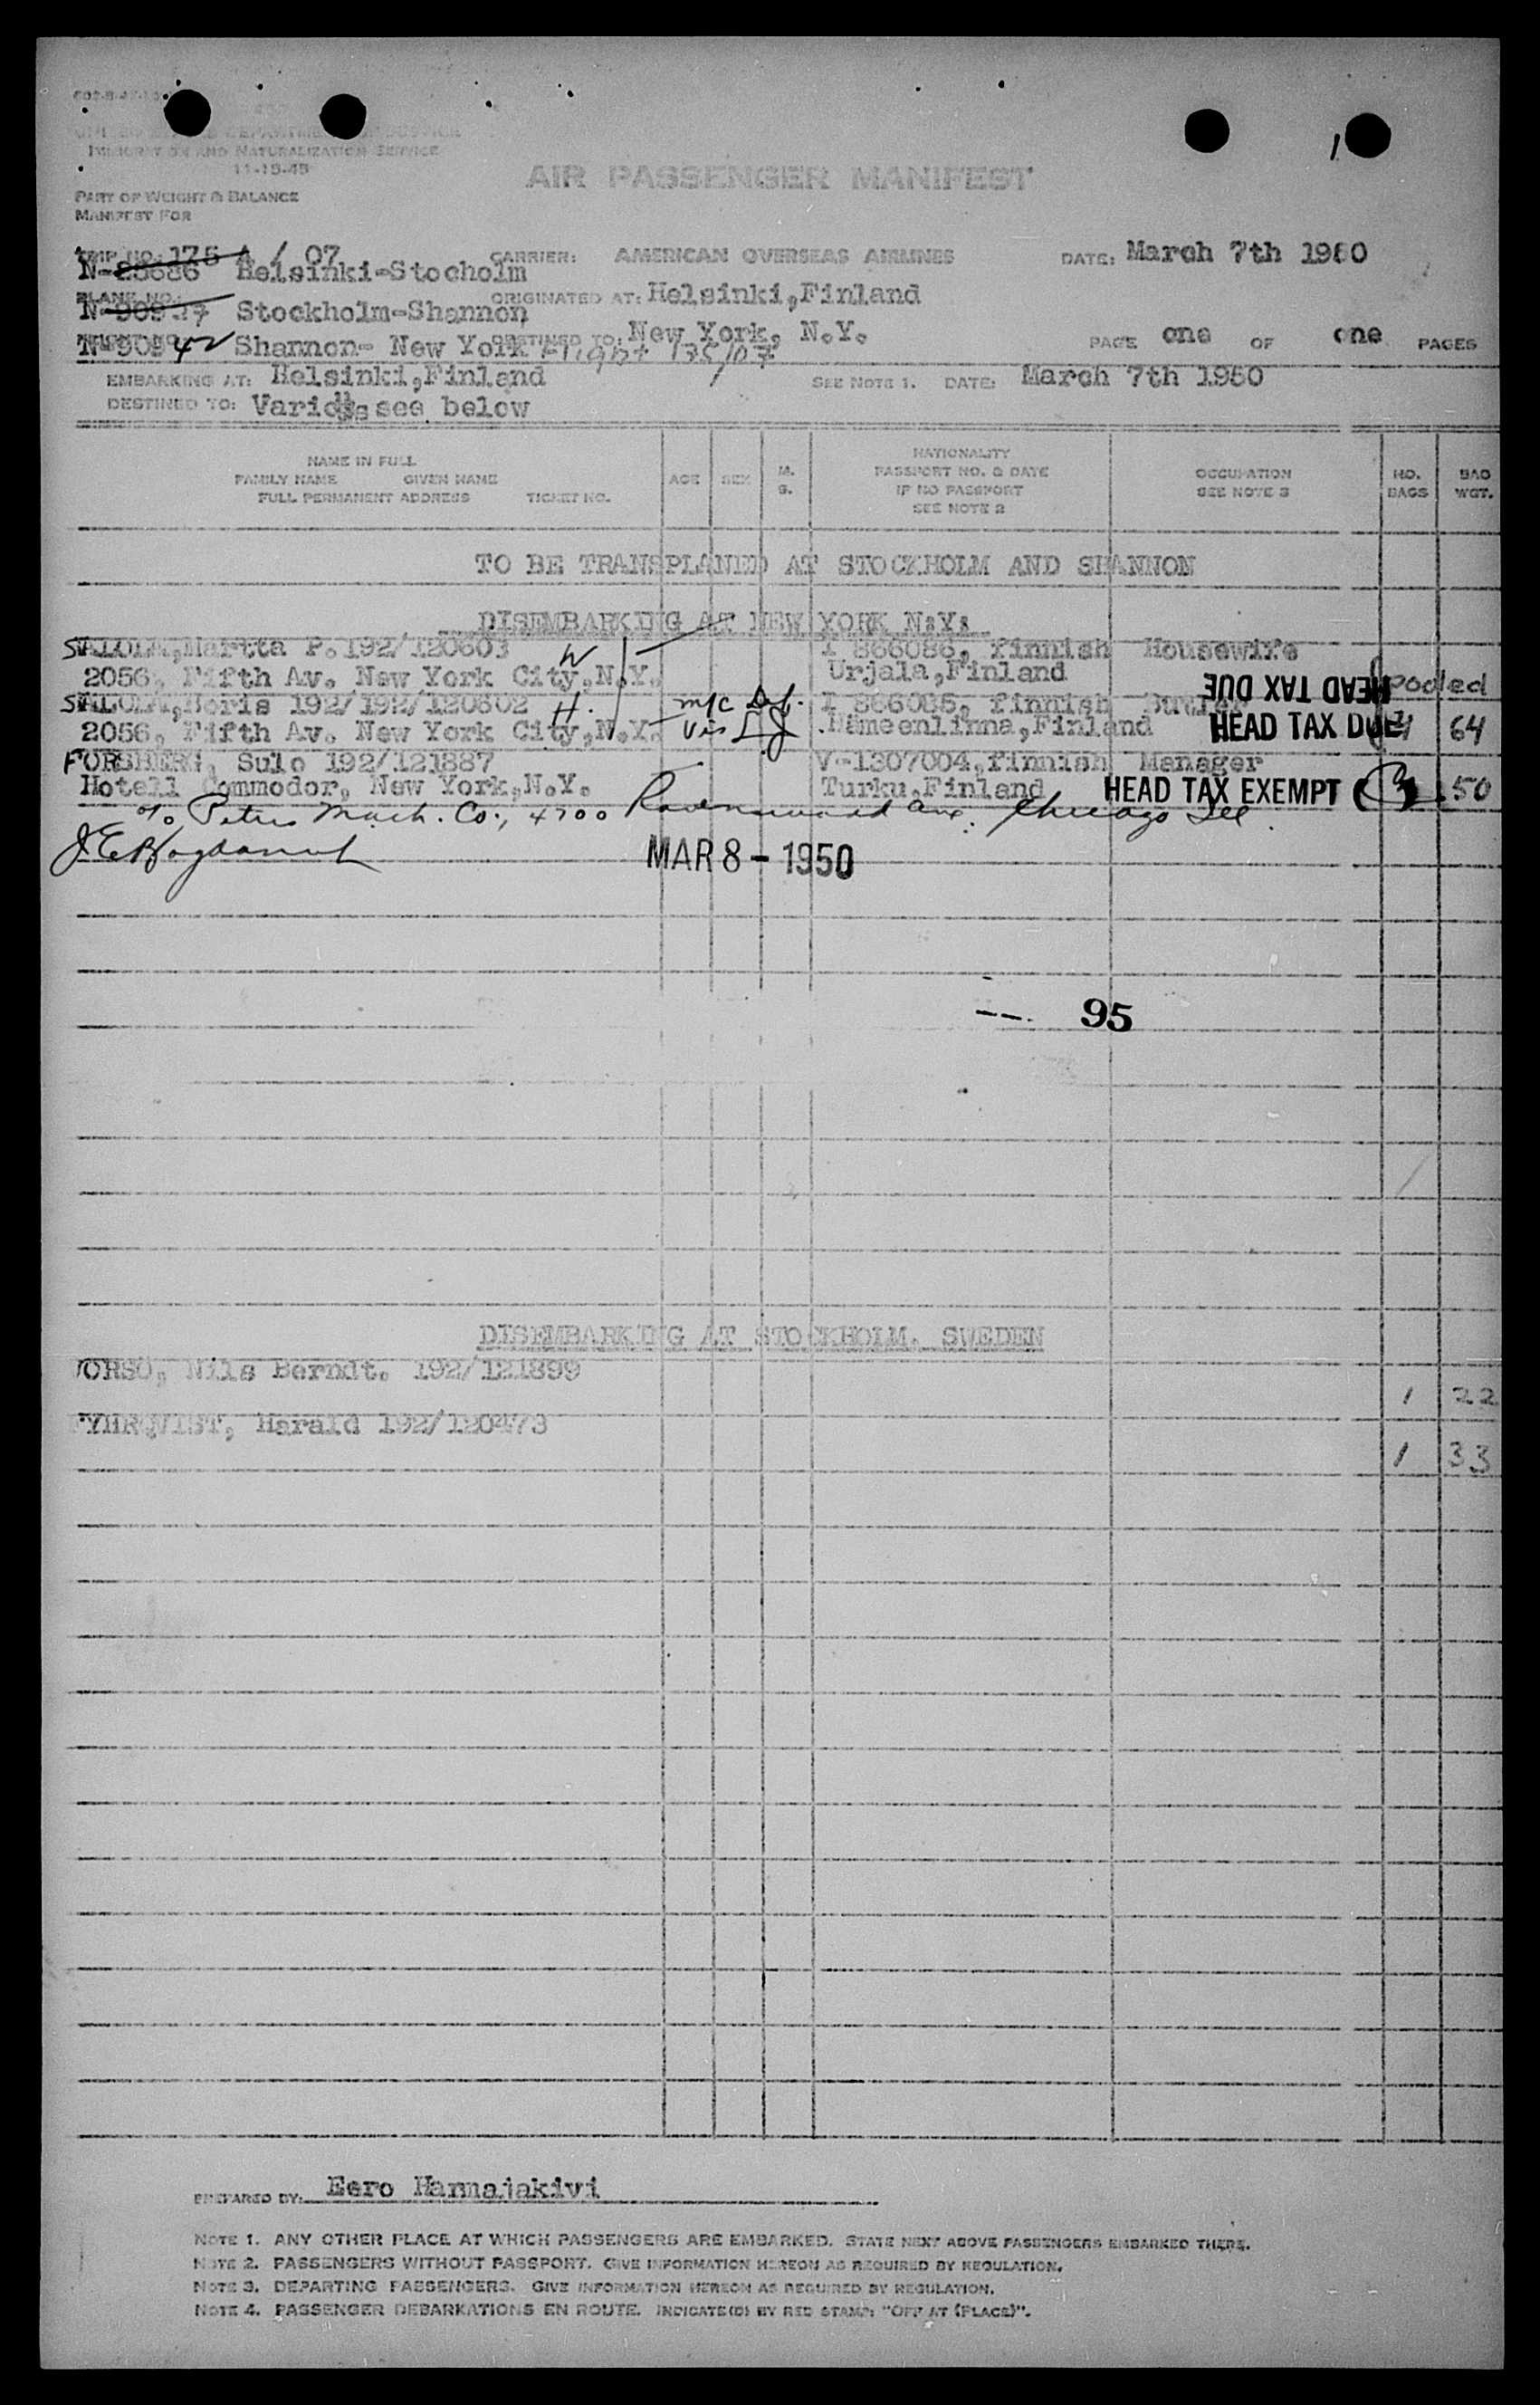 UNITED STATES DEPARTMENT OF JUSTICE
IMMIGRATION AND NATURALIZATION SERVICE
11-15-45
AIR PASSENGER MANIFEST
PART OF WEIGHT & BALANCE
MANIFEST FOR
TRIP NO. 175 A / 07 CARRIER: AMERICAN OVERSEAS AIRLINES DATE: March 7th 1950
N-25686 Helsinki-Stocholm
PLANE NO. ORIGINATED AT: Helsinki,Finland
Stockholm-Shannon
DESTINED TO: New York, N.Y. PAGE one OF one PAGES
N-90942 Shannon- New York Flight
EMBARKING AT: Helsinki,Finland SEE NOTE 1. DATE: March 7th 1950
DESTINED TO: Various see below
NAME IN FULL
FAMILY NAME GIVEN NAME
FULL PERMANENT ADDRESS TICKET NO.
AGE SEX M. S.
NATIONALITY
PASSPORT NO. & DATE
IF NO PASSPORT
SEE NOTE 2
OCCUPATION
SEE NOTE 3
NO. BAGS
BAG WGT.
TO BE TRANSPLANED AT STOCKHOLM AND SHANNON
DISEMBARKING AT NEW YORK N:Y:
SALOLA,Martta P. 192/120603 W I 866086, finnish Housewife
2056, Fifth Av. New York City,N.Y. Urjala,Finland HEAD TAX DUE pooled
SALOLA,Boris 192/192/120602 H. I 866085, finnish
2056, Fifth Av. New York City,N.Y. Hämeenlinna,Finland HEAD TAX DUE 64
FORSBERG, Sulo 192/121887 V-1307004,finnish Manager
Hotell Commodor, New York,N.Y. Turku,Finland HEAD TAX EXEMPT 50
c/o Peters Mach. Co., 4700 Ravenswood Ave. Chicago Ill.
MAR 8 - 1950
95
DISEMBARKING AT STOCKHOLM. SWEDEN
Nils Berndt. 192/121899
1 22
FYHRQVIST, Harald 192/120473
1 33
PREPARED BY: Eero Hannajakivi
NOTE 1. ANY OTHER PLACE AT WHICH PASSENGERS ARE EMBARKED. STATE NEXT ABOVE PASSENGERS EMBARKED THERE.
NOTE 2. PASSENGERS WITHOUT PASSPORT. GIVE INFORMATION HEREON AS REQUIRED BY REGULATION.
NOTE 3. DEPARTING PASSENGERS. GIVE INFORMATION HEREON AS REQUIRED BY REGULATION.
NOTE 4. PASSENGER DEBARKATIONS EN ROUTE. INDICATE(D) BY RED STAMP: "OFF AT (PLACE)".